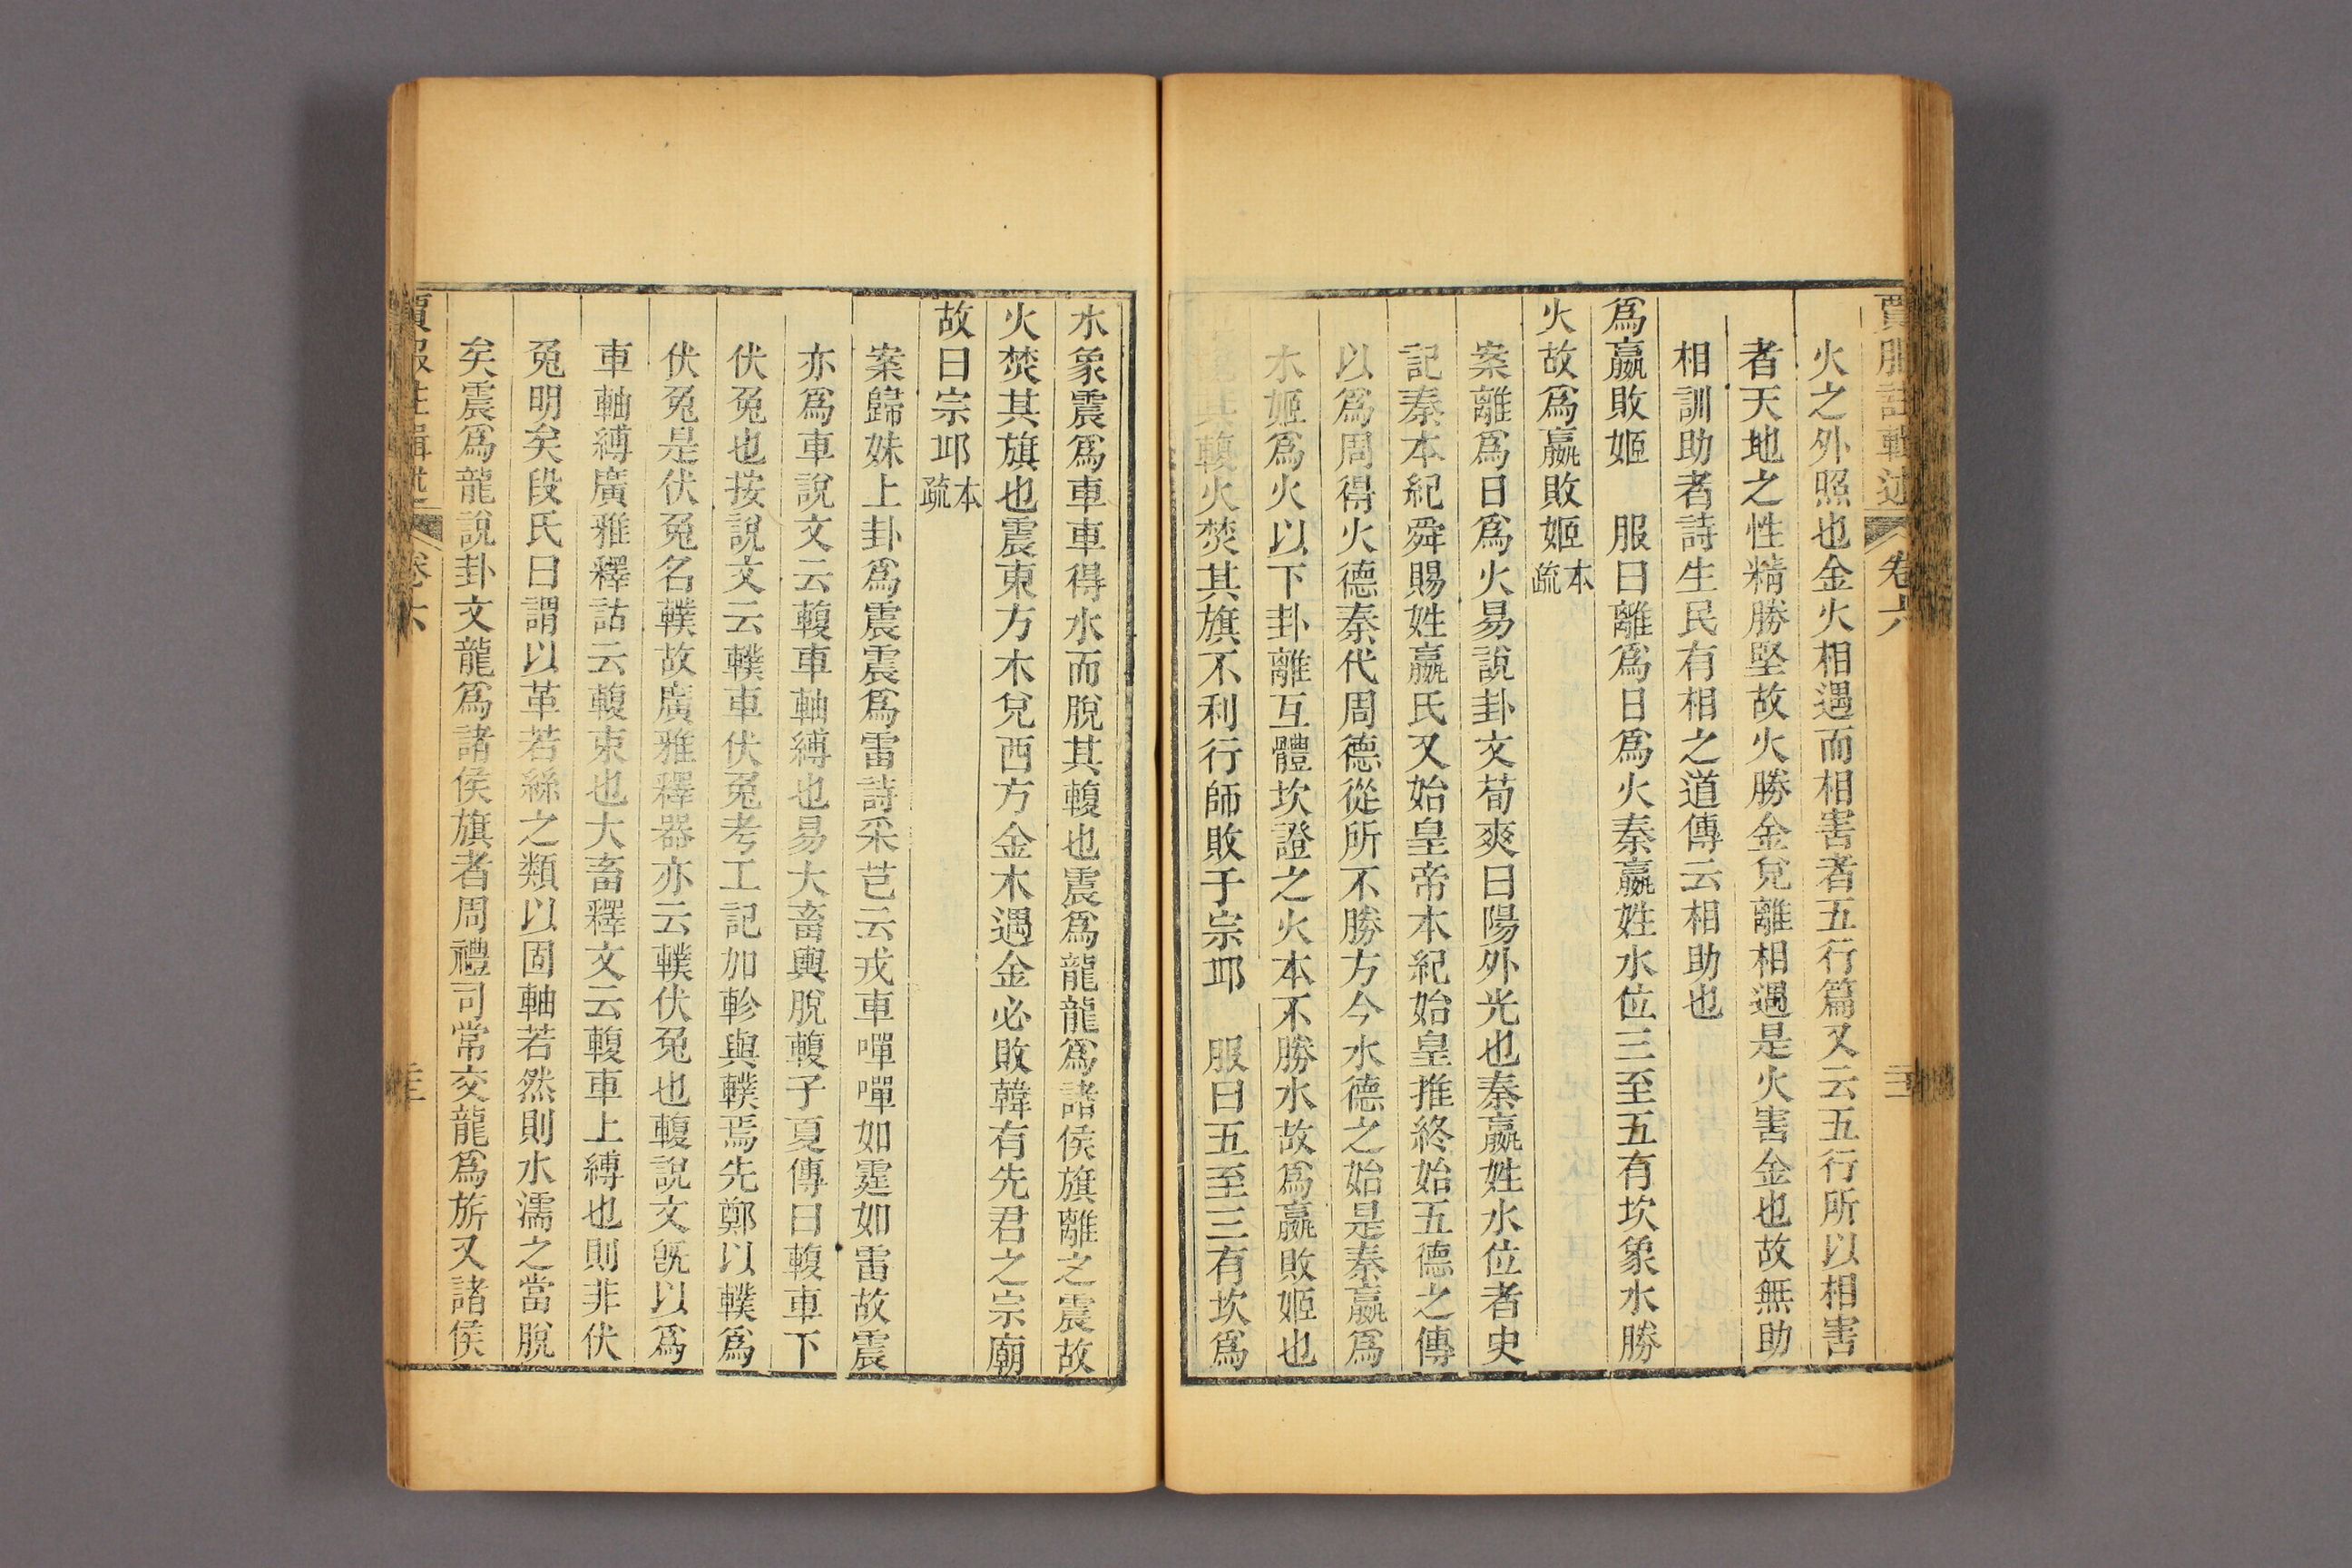 賈服註輯述 卷六
火之外照也金火相遇而相害者五行篇又云五行所以相害
者天地之性精勝堅故火勝金兌離相遇是火害金也故無助
相訓助者詩生民有相之道傳云相助也
爲嬴敗姬 服曰離爲日爲火秦嬴姓水位三至五有坎象水勝
火故爲嬴敗姬本疏
案離爲日爲火易說卦文荀爽曰陽外光也秦嬴姓水位者史
記秦本紀舜賜姓嬴氏又始皇帝本紀始皇推終始五德之傳
以爲周得火德秦代周德從所不勝方今水德之始是秦嬴爲
水姬爲火以下卦離互體坎證之火本不勝水故爲嬴敗姬也
其輹火焚其旗不利行師敗于宗邱 服曰五至三有坎爲
水象震爲車車得水而脫其輹也震爲龍龍爲諸侯旗離之震故
火焚其旗也震東方木兌西方金木遇金必敗韓有先君之宗廟
故曰宗邱本疏
案歸妹上卦爲震震爲雷詩采芑云戎車嘽嘽如霆如雷故震
亦爲車說文云輹車軸縛也易大畜輿脫輹子夏傳曰輹車下
伏兔也按說文云轐車伏兔考工記加軫與轐焉先鄭以轐爲
伏兔是伏兔名轐故廣雅釋器亦云轐伏兔也輹說文旣以爲
車軸縛廣雅釋詁云輹束也大畜釋文云輹車上縛也則非伏
兔明矣段氏曰謂以革若絲之類以固軸若然則水濡之當脫
矣震爲龍說卦文龍爲諸侯旗者周禮司常交龍爲旂又諸侯
卷六